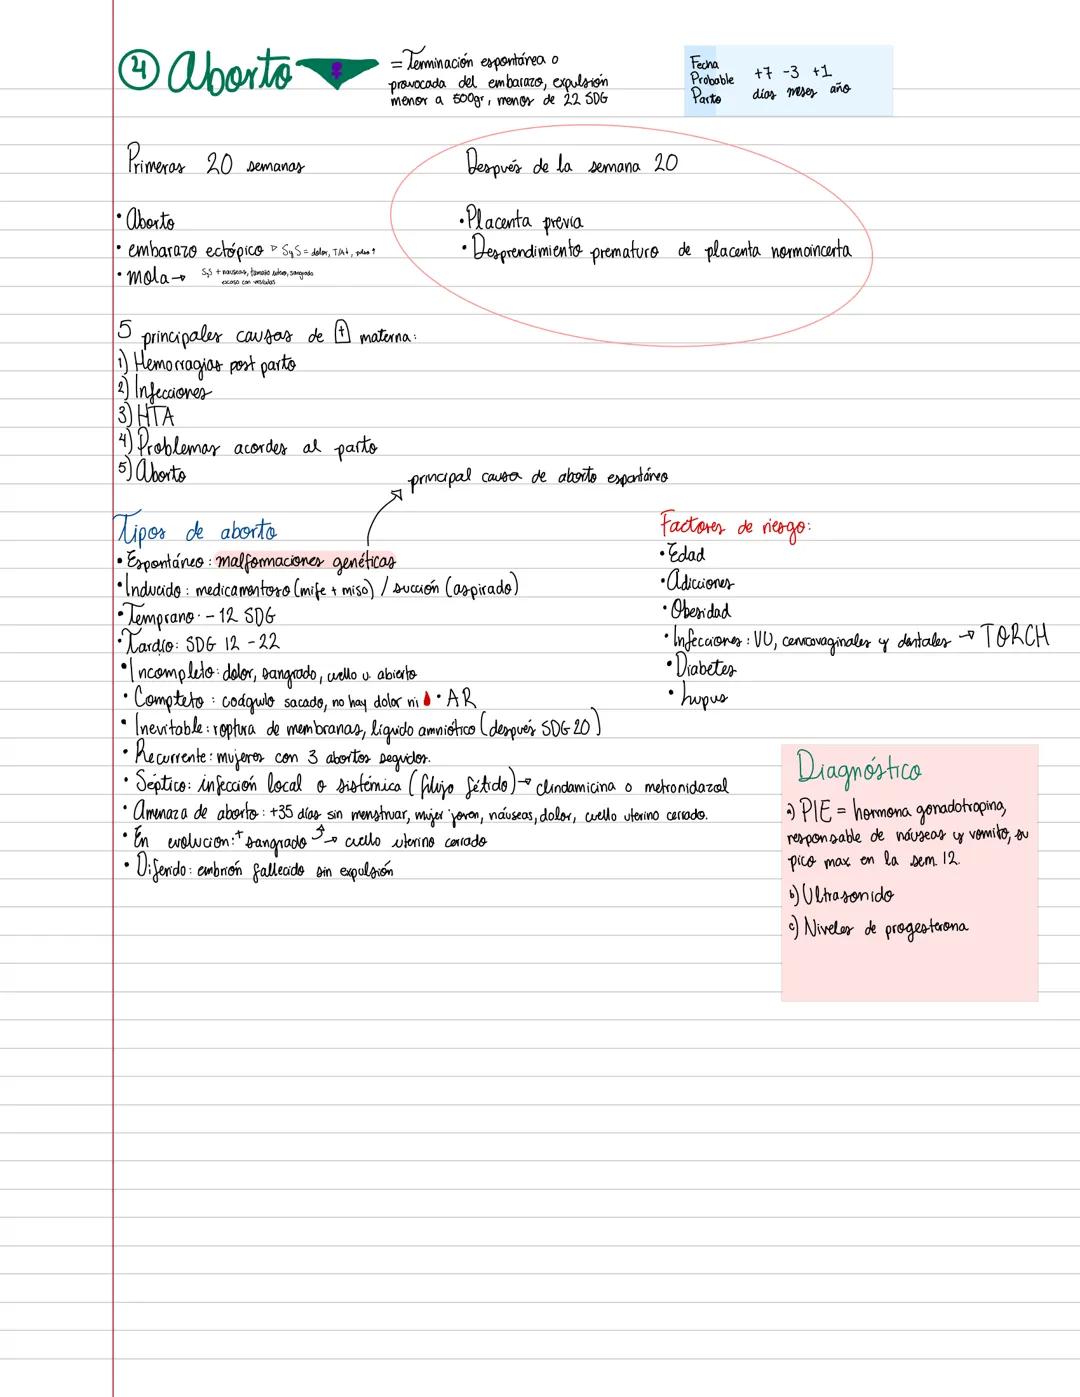 ④ Aborto
= Terminación espontánea o
provocada del embarazo, expulsión
menor a 500gr, menos de 22 SDG
Fecha
Probable
Parto
+7 -3 +1
días meses año
Primeras 20 semanas
• Aborto
• embarazo ectópico ▷ SyS = dolor, T/A↓, pulso↑
• mola → SyS + nauseas, tamaño utero, sangrado
escaso con vesículas
Después de la semana 20
• Placenta previa
• Desprendimiento prematuro de placenta normoincerta
5 principales causas de materna:
1) Hemorragias post parto
2) Infecciones
3) HTA
4) Problemas acordes al parto
5) Aborto
principal causa de aborto espontáneo
Tipos de aborto
• Espontáneo: malformaciones genéticas
• Inducido: medicamentoso (mife + miso) / succión (aspirado)
• Temprano: - 12 SDG
• Tardío: SDG 12 - 22
• Incompleto: dolor, sangrado, cuello u. abierto
• Completo: coágulo sacado, no hay dolor ni • AR
• Inevitable: roptura de membranas, líquido amniótico (después SDG 20)
• Recurrente: mujeres con 3 abortos seguidos.
• Séptico: infección local o sistémica (flujo fétido) → clindamicina o metronidazol
• Amenaza de aborto: +35 días sin menstruar, mujer joven, náuseas, dolor, cuello uterino cerrado.
• En evolucion: + sangrado → cuello uterino cerrado
• Diferido: embrión fallecido sin expulsión
Factores de riesgo:
• Edad
• Adicciones
• Obesidad
• Infecciones: VU, cervicovaginales y dentales → TORCH
• Diabetes
• Lupus
Diagnóstico
a) PIE = hormona gonadotropina,
responsable de náuseas y vomito, su
pico max en la sem. 12.
b) Ultrasonido
c) Niveles de progesterona